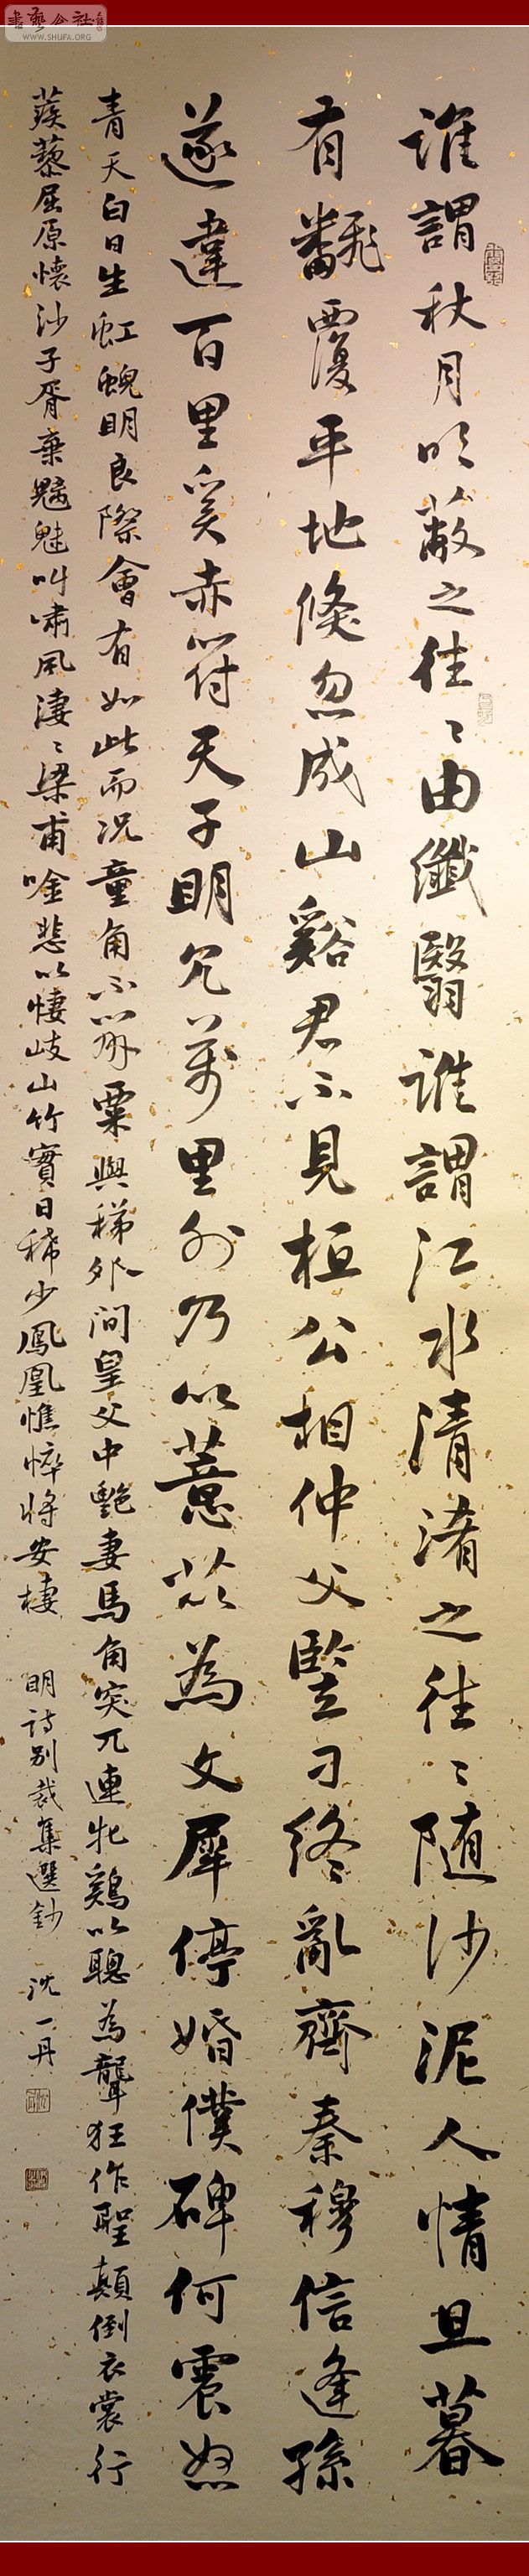 書藝公社
WWW.SHUFA.ORG
誰謂秋月明蔽之往〻由纖翳誰謂江水清淆之往〻随沙泥人情旦暮
有飜覆平地倏忽成山谿君不見桓公相仲父豎刁終亂齊秦穆信逢孫
遂違百里奚赤符天子明見萬里外乃以薏苡為文犀停婚僕碑何震怒
青天白日生虹蜺明良際會有如此而況童角不辨粟與稊外间皇父中艷妻馬角突兀連牝鷄以聰為聾狂作聖顛倒衣裳行
蒺藜屈原懷沙子胥棄魑魅叫嘯風淒〻梁甫唫悲以悽岐山竹實日稀少鳳凰憔悴將安棲 明詩别裁集選鈔 沈一丹